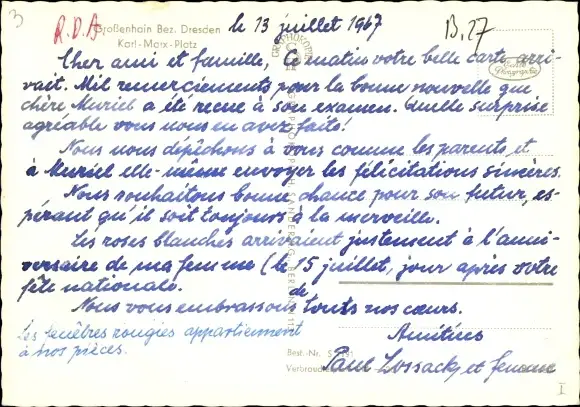 3
R.D.A
Großenhain Bez. Dresden
Karl-Marx-Platz
le 13 juillet 1967
B.27
Cher ami et famille, Ce matin votre belle carte arri-
vait. Mil remerciements pour la bonne nouvelle que
chère Muriel a été reçue à son examen. Quelle surprise
agréable vous nous en avez faite!
Nous nous dépêchons à vous comme les parents et
à Muriel elle-même envoyer les félicitations sincères.
Nous souhaitons bonne chance pour son futur, es-
pérant qu'il soit toujours à la merveille.
Les roses blanches arrivaient justement à l'anni-
versaire de ma femme (le 15 juillet, jour après votre
fête nationale.
Nous vous embrassons de touts nos cœurs.
Les fenêtres rougies appartiennent
à nos pièces.
Amitiés
Best.-Nr.
Paul Lossack et femme
I